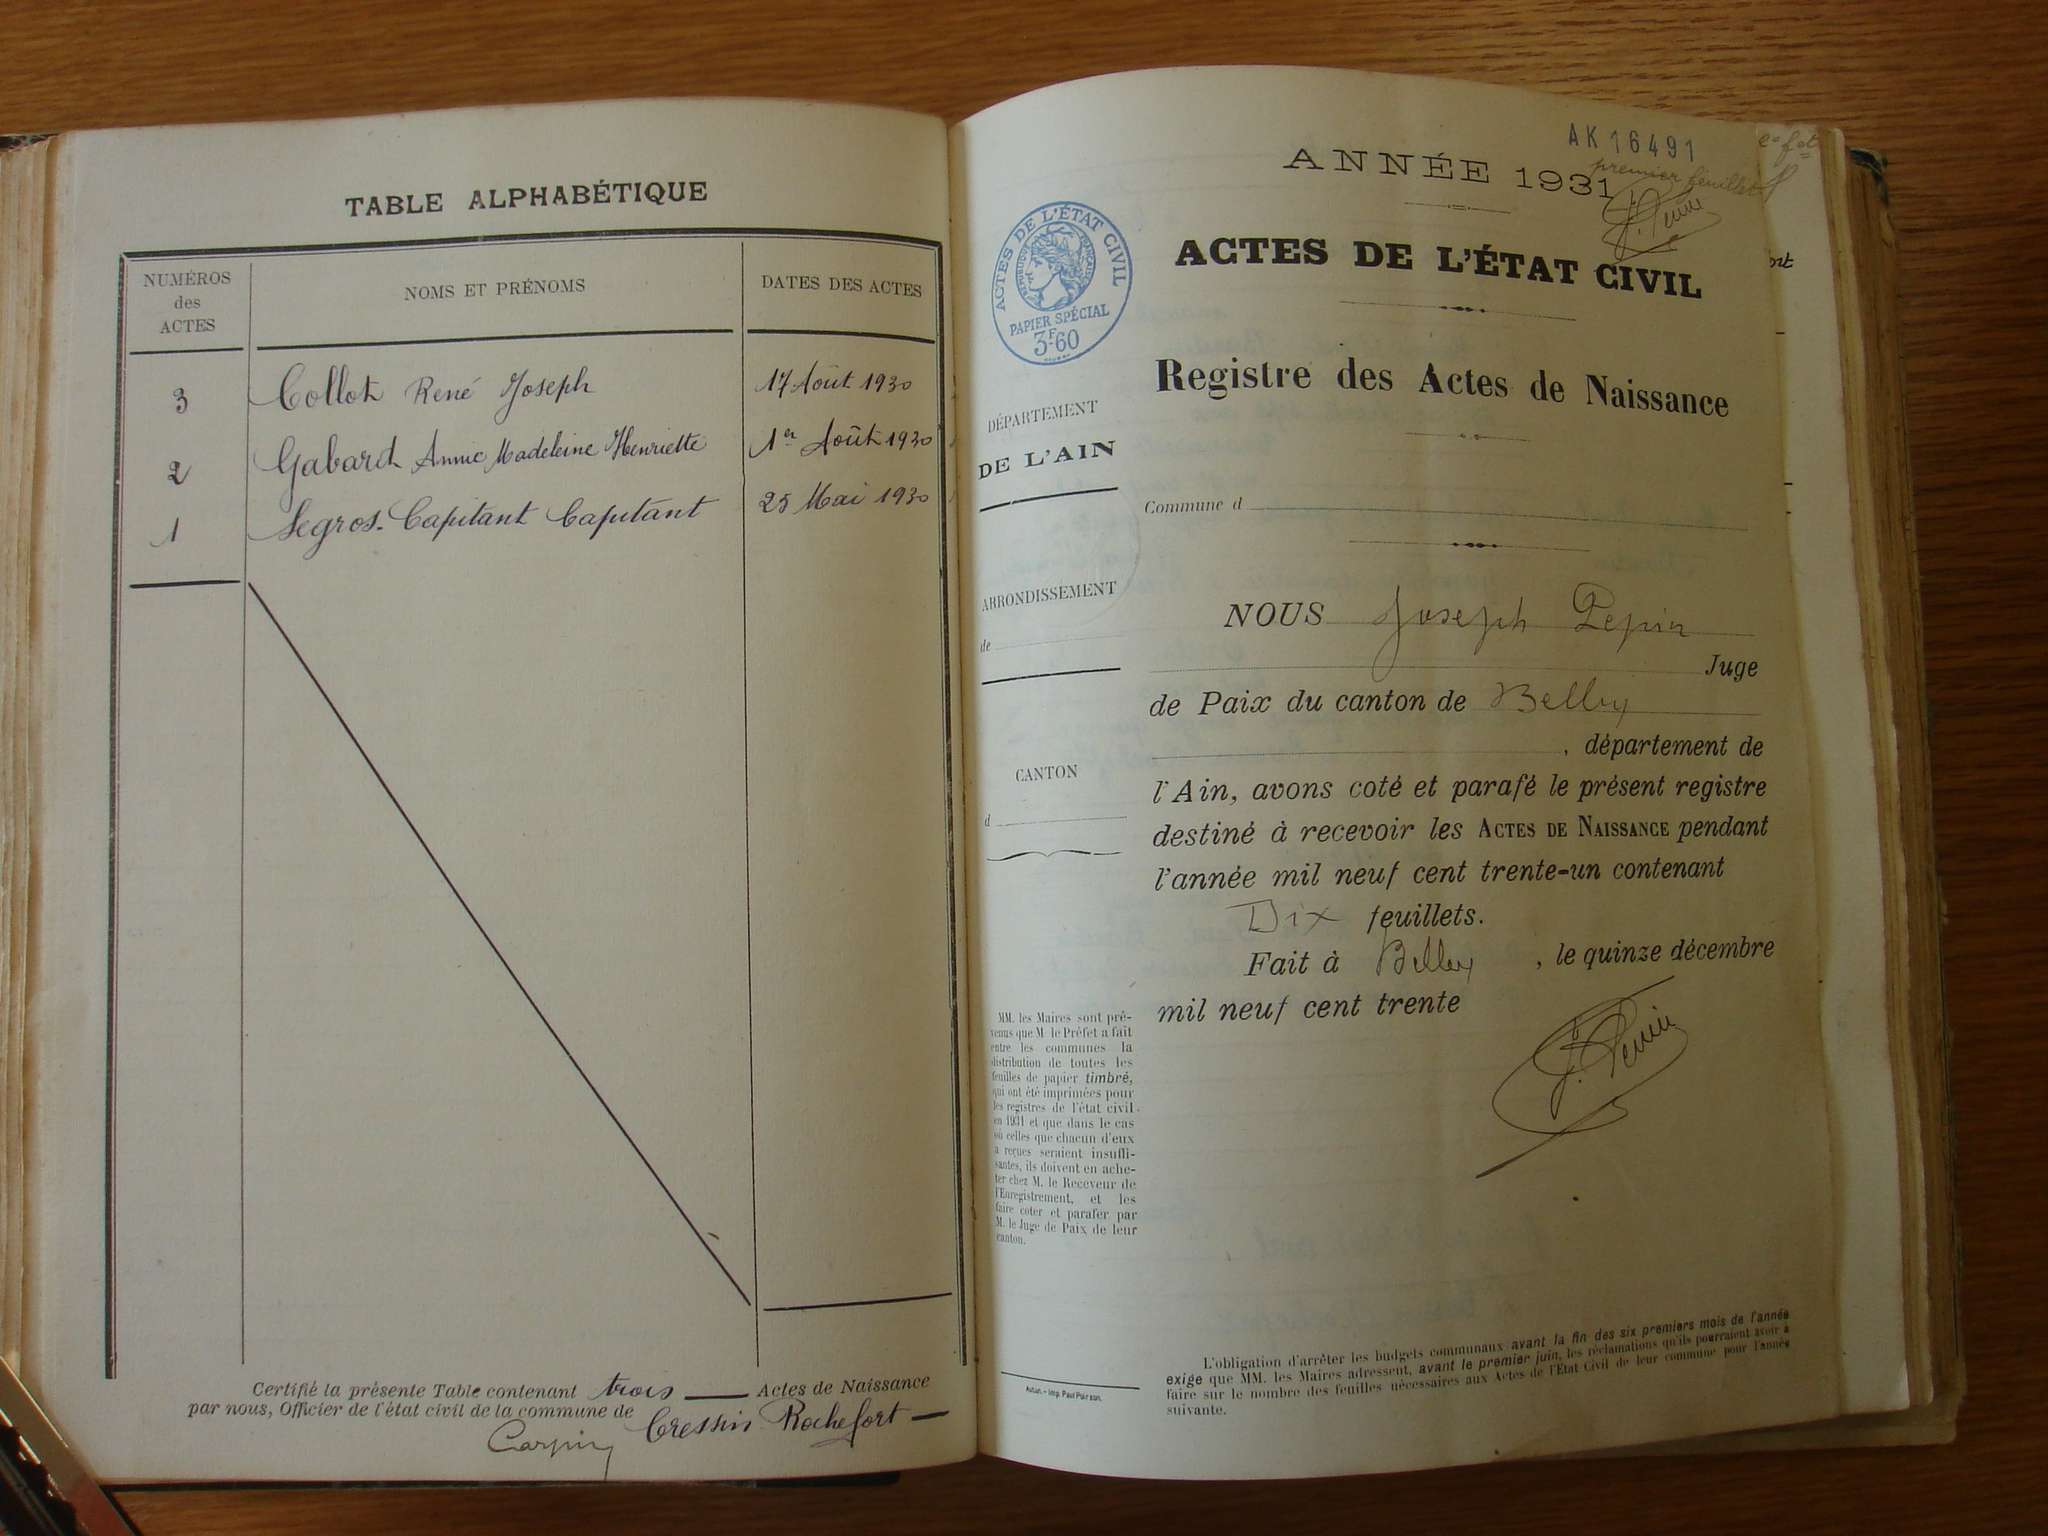 TABLE ALPHABÉTIQUE
NUMÉROS
des
ACTES
NOMS ET PRÉNOMS
DATES DES ACTES
3 Collot René Joseph 17 Août 1930
2 Gabard Annie Madeleine Henriette 1er Août 1930
1 Segros-Capitant Capitant 25 Mai 1930
Certifié la présente Table contenant trois Actes de Naissance
par nous, Officier de l'état civil de la commune de Cressin Rochefort
AK 16491
ANNÉE 1931
premier feuillet
J. Pepin
ACTES DE L'ÉTAT CIVIL
ACTES DE L'ÉTAT CIVIL
RÉPUBLIQUE FRANÇAISE
PAPIER SPÉCIAL
3F60
Registre des Actes de Naissance
DÉPARTEMENT
DE L'AIN
Commune d
ARRONDISSEMENT
de
CANTON
d
NOUS Joseph Pepin
Juge
de Paix du canton de Belley
, département de
l'Ain, avons coté et parafé le présent registre
destiné à recevoir les ACTES DE NAISSANCE pendant
l'année mil neuf cent trente-un contenant
Dix feuillets.
Fait à Belley, le quinze décembre
mil neuf cent trente
J. Pepin
MM. les Maires sont pré-
venus que M. le Préfet a fait
entre les communes la
distribution de toutes les
feuilles de papier timbré,
qui ont été imprimées pour
les registres de l'état civil
en 1931 et que dans le cas
où celles que chacun d'eux
a reçues seraient insuffi-
santes, ils doivent en ache-
ter chez M. le Receveur de
l'Enregistrement, et les
faire coter et parafer par
M. le Juge de Paix de leur
canton.
L'obligation d'arrêter les budgets communaux avant la fin des six premiers mois de l'année
exige que MM. les Maires adressent, avant le premier juin, les réclamations qu'ils pourraient avoir à
faire sur le nombre des feuilles nécessaires aux Actes de l'Etat Civil de leur commune pour l'année
suivante.